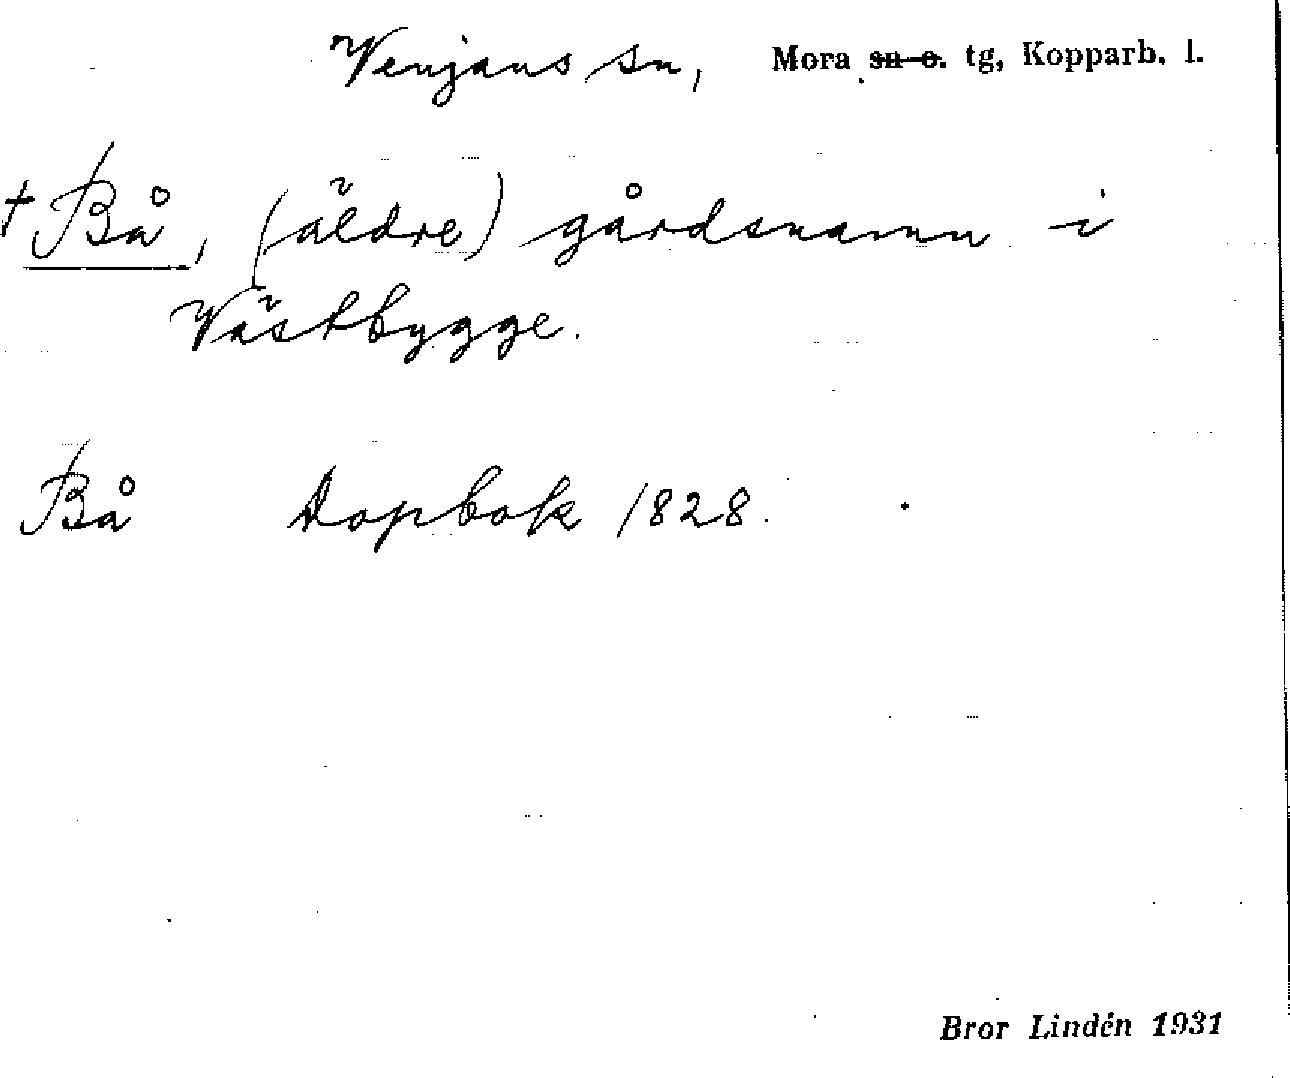 Venjans sn, Mora sn o. tg, Kopparb. l.
† Bå, (äldre) gårdsnamn i
Västbygge.
Bå Dopbok 1828.
Bror Lindén 1931